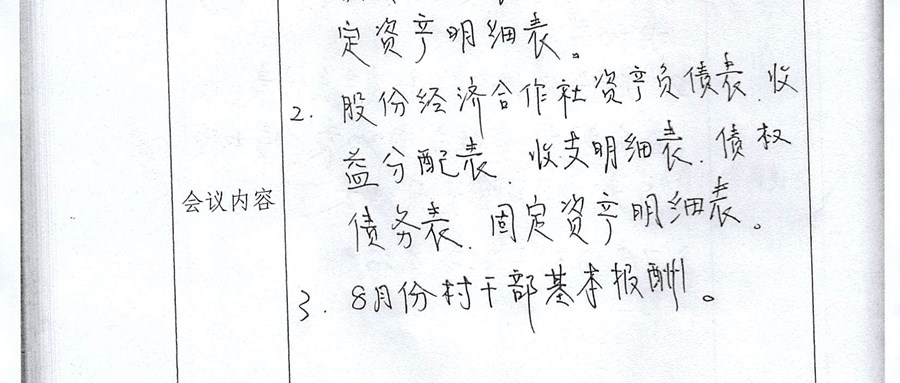 定资产明细表。
2. 股份经济合作社资产负债表、收
益分配表、收支明细表、债权
会议内容
债务表、固定资产明细表。
3. 8月份村干部基本报酬。